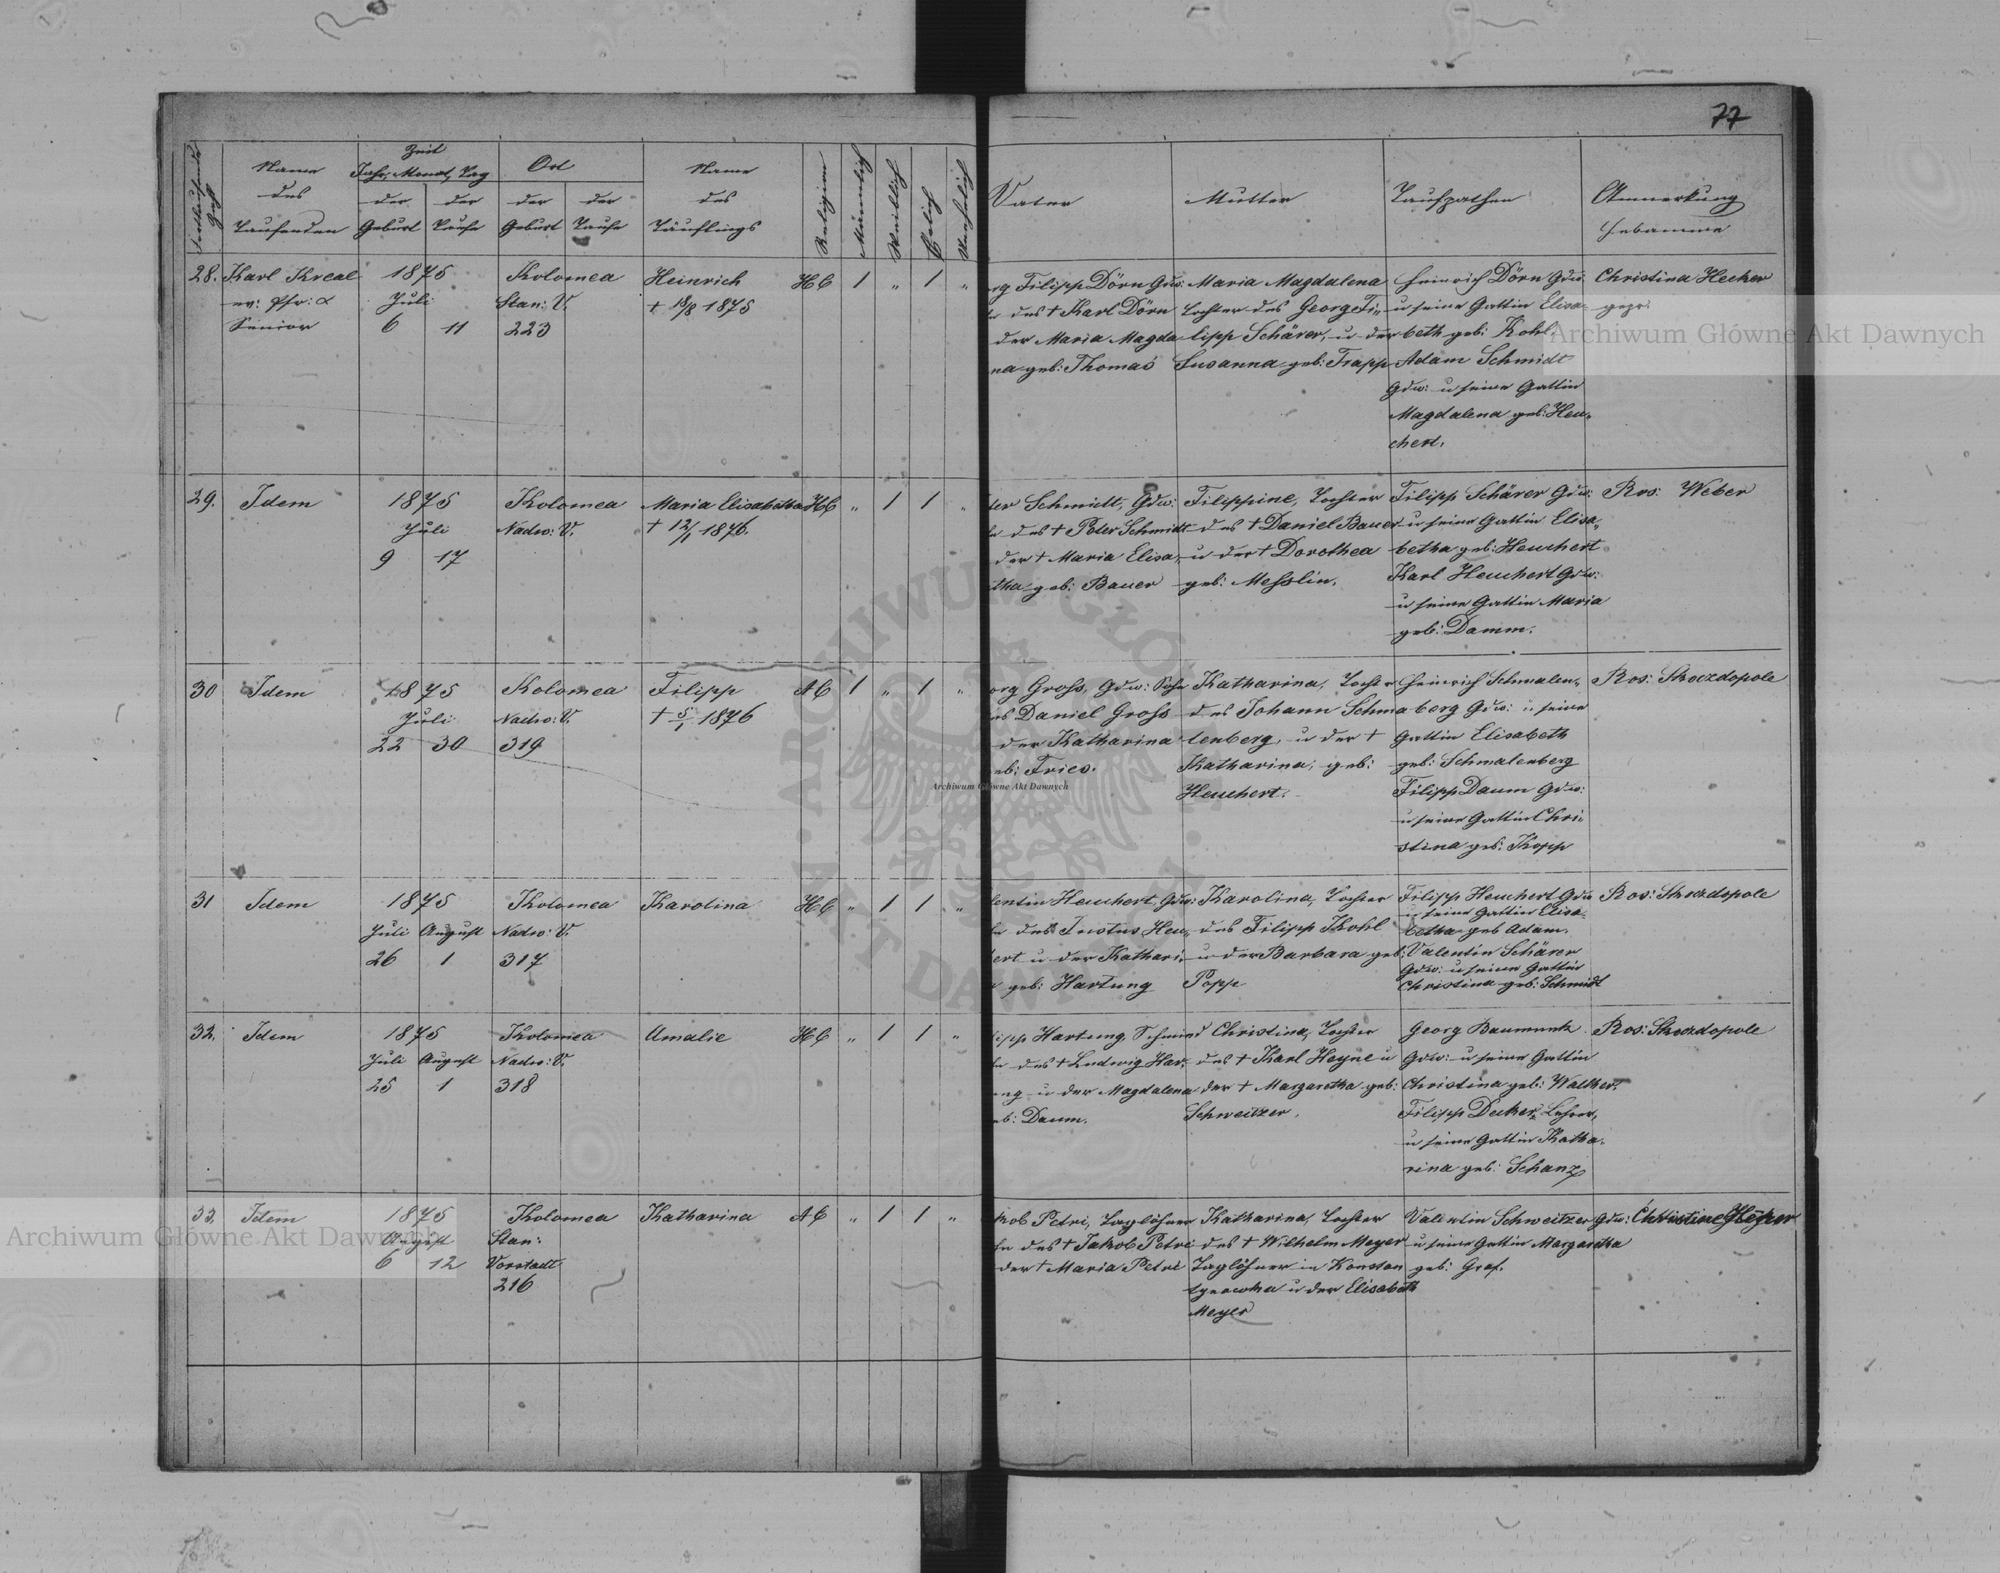 77
Fortlaufende Zahl
Name des Taufenden
Zeit
Jahr, Monat, Tag
der Geburt
der Taufe
Ort
der Geburt
der Taufe
Name des Täuflings
Religion
Männlich
Weiblich
Ehelich
Unehelich
Vater
Mutter
Taufpathen
Anmerkung
Hebamme
28. Karl Kreal
ev: Pfr: &
Senior
1875
Juli
6 11
Kolomea
Stan: V.
223
Heinrich
† 18/8 1875
HC 1 „ 1 „
rg Filipp Dörn Gdw:
des † Karl Dörn
der Maria Magda
na geb: Thomas
Maria Magdalena
Tochter des Georg Fi„
lipp Schärer, u der
Susanna geb: Trapp
Heinrich Dörn Gdw:
u seine Gattin Elisa„
beth geb: Kohl.
Adam Schmidt
Gdw: u seine Gattin
Magdalena geb: Heu„
chert.
Christina Hecker
gepr:
29. Idem
1875
Juli
9 17
Kolomea
Nadw: V.
Maria Elisabetha
† 12/1 1876.
HC „ 1 1 „
ter Schmidt, Gdw:
des † Peter Schmidt
der † Maria Elisa„
tha geb: Bauer
Filippine, Tochter
des † Daniel Bauer
u der † Dorothea
geb: Messlin.
Filipp Schärer Gdw:
u seine Gattin Elisa„
betha geb: Heuchert
Karl Heuchert Gdw:
u seine Gattin Maria
geb: Damm.
Ros: Weber
30 Idem
1875
Juli
22 30
Kolomea
Nadw: V.
319
Filipp
† 5/1 1876
AC 1 „ 1 „
org Gross, Gdw: Sohn
es Daniel Gross
der Katharina
eb: Fries.
Katharina, Tochter
des Johann Schma
lenberg, u der †
Katharina, geb:
Heuchert.
Heinrich Schmalen„
berg Gdw: u seine
Gattin Elisabeth
geb: Schmalenberg
Filipp Daum Gdw:
u seine Gattin Chri„
stina geb: Kopp
Ros: Skoczdopole
31 Idem
1875
Juli August
26 1
Kolomea
Nadw: V.
317
Karolina
HC „ 1 1 „
lentin Heuchert, Gdw:
des Justus Heu„
ert u der Kathari„
geb: Hartung
Karolina, Tochter
des Filipp Kohl
u der Barbara geb:
Popp
Filipp Heuchert Gdw
u seine Gattin Elisa„
betha geb Adam.
Valentin Schärer
Gdw: u seine Gattin
Christina geb: Schmidt
Ros: Skoczdopole
32. Idem
1875
Juli August
25 1
Kolomea
Nadw: V.
318
Amalie
HC „ 1 1 „
ipp Hartung, Schmied
des † Ludwig Har„
ng u der Magdalena
eb: Daum.
Christina, Tochter
des † Karl Heyne u
der † Margaretha geb:
Schweitzer.
Georg Baumunk
Gdw: u seine Gattin
Christina geb: Walther.
Filipp Decker, Lehrer,
u seine Gattin Katha„
rina geb: Schanz
Ros: Skoczdopole
33. Idem
1875
August
6 12
Kolomea
Stan:
Vorstadt
216
Katharina
AC „ 1 1 „
kob Petri, Taglöhner
des † Jakob Petri
der † Maria Petri
Katharina, Tochter
des † Wilhelm Meyer
Taglöhner in Konstan
u der Elisabeth
Meyer
Valentin Schweitzer Gdw:
u seine Gattin Margaretha
geb: Graf.
Christine
Archiwum Główne Akt Dawnych
Archiwum Główne Akt Dawnych
Archiwum Główne Akt Dawnych